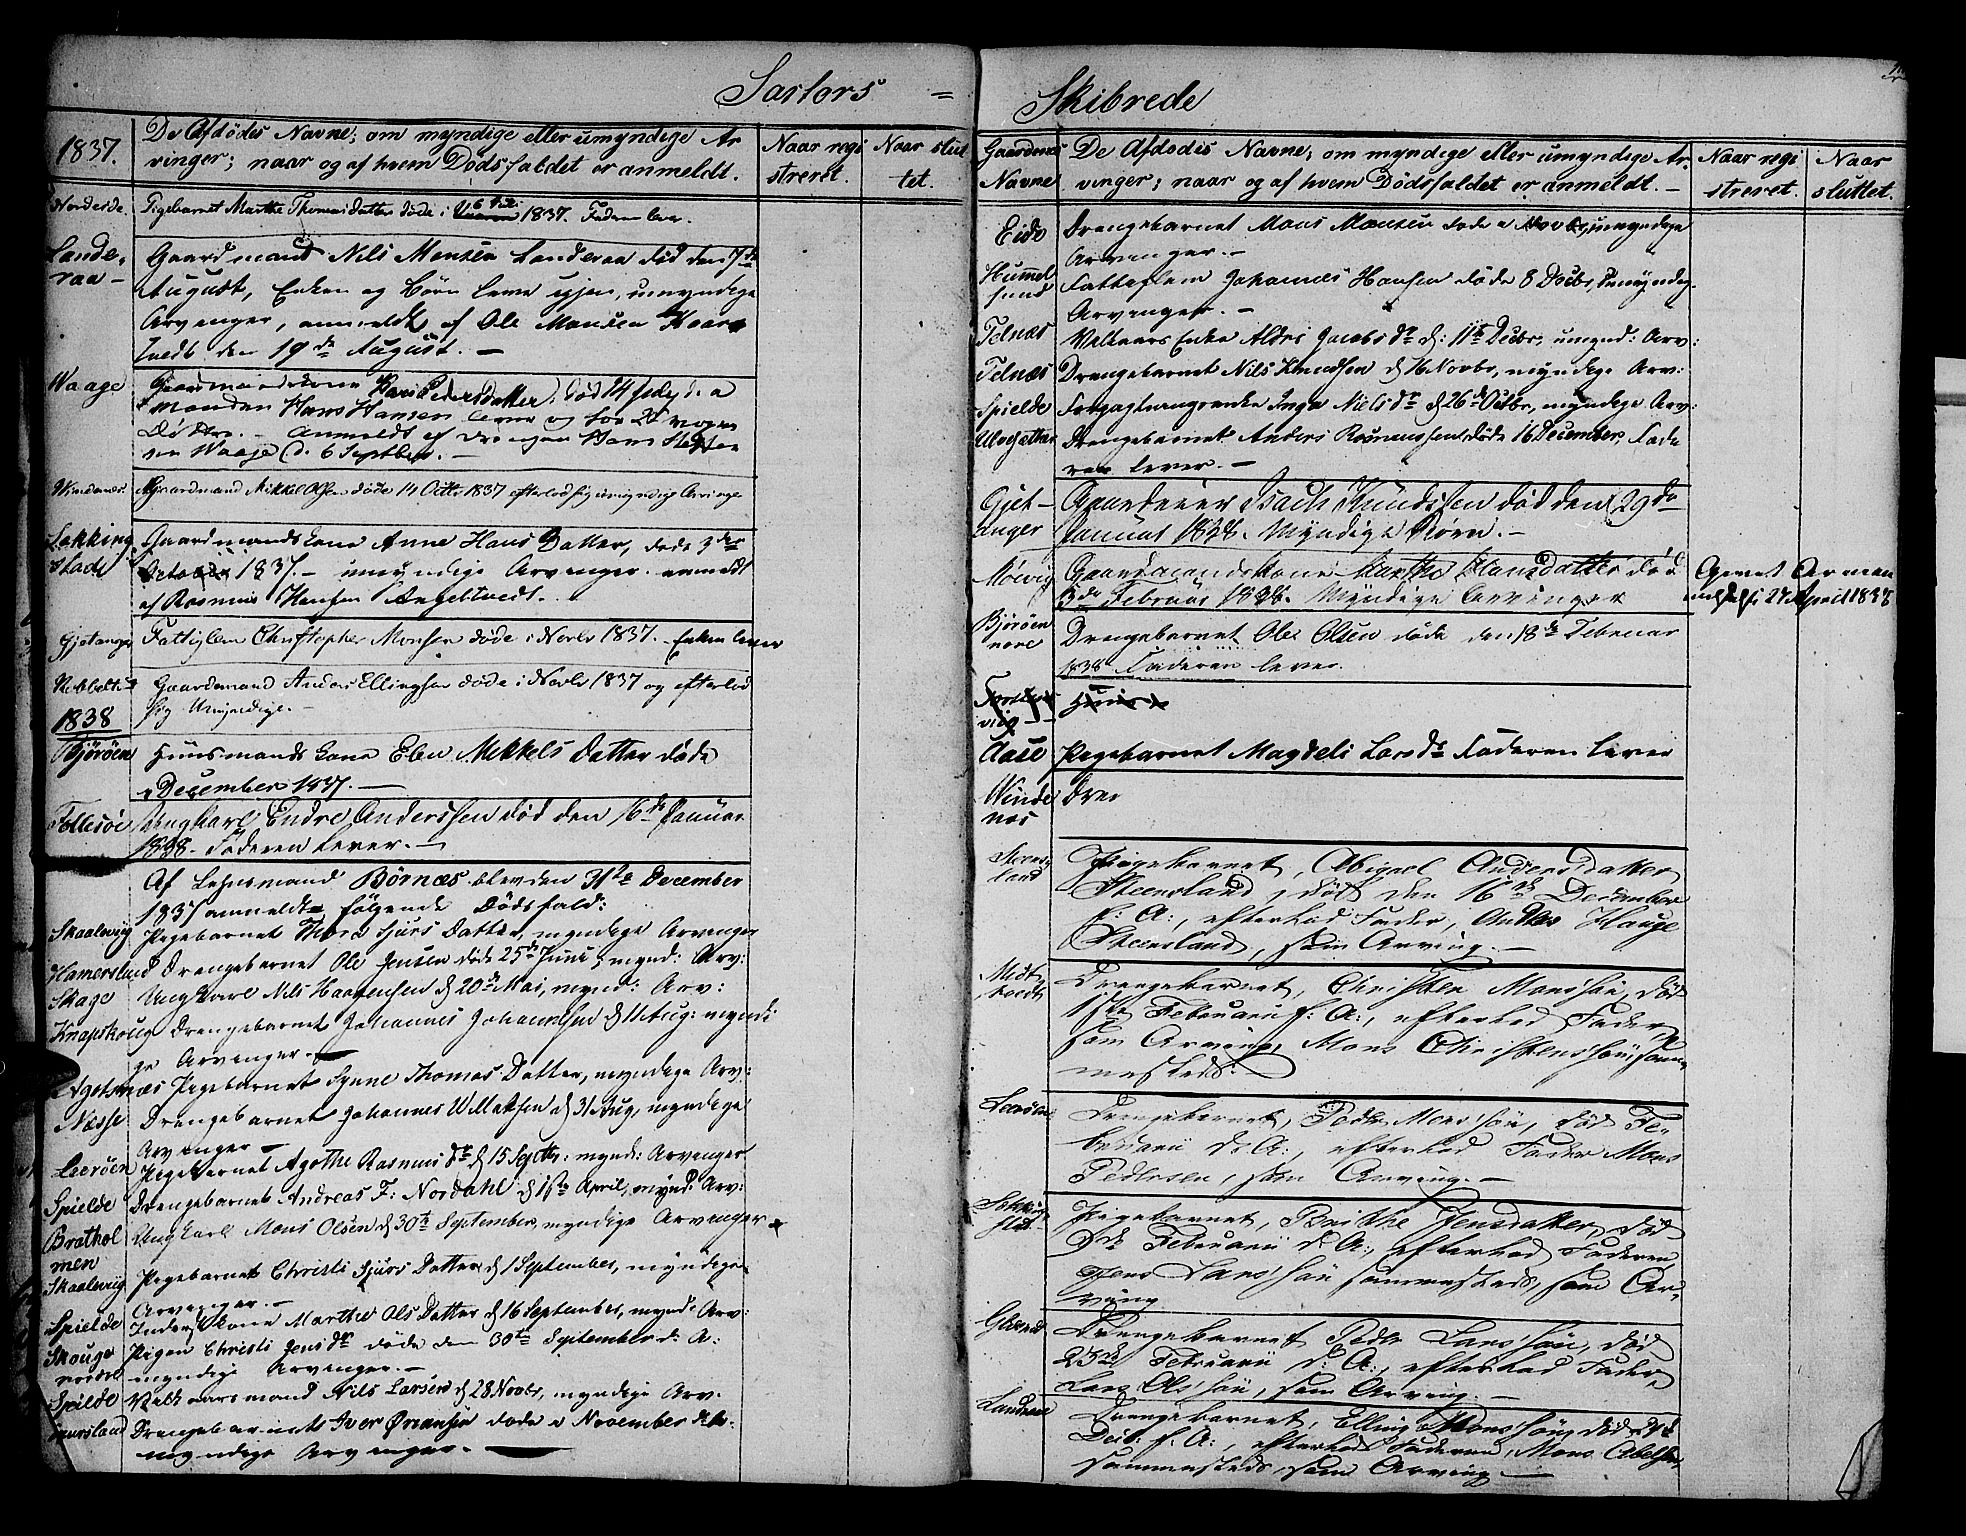 Sartors = Skibrede
1837.
De Afdødes Navne; om myndige eller umyndige Ar-
vinger; naar og af hvem Dödsfaldet er anmeldt.
Naar regi
streret.
Naar slut
tet.
Norderde
Pigebarnet Marthe Thomasdatter døde i 1837. Faderen lever.
Lande-
raa -
Gaardmand Nils Monsen Landeraa død den 7de
August, Enken og Børn lever igjen, umyndige
Arvenger, anmeldt af Ole Monsen Kaar
tvedt den 19de August. —
Waage
Gaardmandskone Kari Pedersdatter, død 14
Manden Hans Hansen lever og
Døttre. - Anmeldt af Drengen Hans
sen Waage d. 6 Septber. —
Windenæs
Gaardmand Mikkel Olsen døde 14 Octbr 1837 efterlod sig umyndige Arvinge
Løkking
stad
Gaardmandskone Anne Hans Datter, døde 3die
October 1837. - umyndige Arvenger. anmeldt
af Rasmus Hansen Angeltvedt.
Gjetanger
Fattiglem Christopher Monsen døde i Novbr 1837. Enken lever
Gaardmand Anders Ellingsen døde i Novbr 1837 og efterlod
sig Umyndige. -
1838
Bjørøen
Huusmands Kone Elen Mikkels Datter døde
December 1837. —
Follesøe
Ungkarl Endre Anderssen død den 16de Januar
1838. Faderen Lever. —
Af Lehnsmand Børnæs blev den 31te December
1837 anmeldt følgende Dödsfald:
Skaalevig
Pigebarnet Thora Sjurs Datter, myndige Arvenger
Hamersland
Drengebarnet Ole Jensen døde 25de Juni, mynd: Arv:
Skage
Ungkarl Nils Haagensen d 20de Mai, mynd: Arv:
Knapskoug
Drengebarnet Johannes Johannesen d 11 Aug: myndi
ge Arvenger. —
Agotnæs
Pigebarnet Synne Thomas Datter, myndige Arv:
Næsse
Drengebarnet Johannes Willaksen d 31 Aug, myndige
Arvenger —
Leerøen
Pigebarnet Agathe Rasmus dr d 15 Septbr: mynd: Arvenger
Spielde
Drengebarnet Andreas F: Nordahl d 1ste April, mynd: Arv:
Brathol
men
Ungkarl Mons Olsen d 30te September, myndige Arvenger
Skaalevig
Pigebarnet Christi Sjurs Datter d 1 September, myndige
Arvenger. —
Spielde
Inderst Kone Marthe Ols Datter d 16 September, mynd: Arv:
Skouge
Pigen Christi Jens dr døde den 30te September d: A:
myndige Arvenger. —
Spielde
Velhaarsmand Nils Larsen d 28 Novbr, myndige Arv.
Drengebarnet Iver døde i November d: A:
myndige Arvenger. —
Gaardenes
Navne
De Afdødes Navne; om myndige eller umyndige Ar-
vinger; naar og af hvem Dödsfaldet er anmeldt. —
Naar regi
streret.
Naar
sluttet.
Eide
Drengebarnet Mons Monsen døde i Novbr, umyndige
Arvenger. —
Hummel
sund
Fattiglem Johannes Hansen døde 8 Decbr, umyndig.
Arvenger. —
Telnæs
Velhaars Enke Aldri Jacobs dr d: 11te Decbr, umynd: Arv:
Telnæs
Drengebarnet Nils Knudsen d 16 Novbr, myndige Arv:
Spielde
Forpagterungsenke Inga Niels dr d 26de Octbr, myndige Arv:
Ulvesætter
Drengebarnet Anders Rasmussen døde 16 December Fade
ren lever. —
Gjet-
anger
Gaardeier Isach Knudssen død den 29de
Januar 1838. Myndige Børn. —
Møvig
Gaardmandskone Marthe Hansdatter død
3de Februar 1838. Myndige Arvinger
27 April 1838
Bjørøen
nore
Drengebarnet Ole Olsen døde den 18de Februar
1838 Faderen lever.
Aase
Pigebarnet Magdeli Lars dr Faderen lever
Winde
næs
Dreng
Steens
land
Pigebarnet, Abigael Andersdatter
Steensland, død den 16de December
f: A:, efterlod Fader, Anders Hauge
Steensland, som Arving. —
Midt
tvedt
Drengebarnet, Christen Monssön, död
1ste Februarii d. A:, efterlod Fader
som Arving, Mons Christenssön, sam-
mesteds. —
Leerøen
Drengebarnet, Peder Monssön, død Fe-
bruarii d: A:, efterlod Fader Mons
Pedersen, som Arving. —
Løkking
stad
Pigebarnet, Barthe Jensdatter, död
9de Februarii d: A:, efterlod Faderen
Jens Larssön sammesteds, som Ar-
ving
Drengebarnet Peder Larssön, död
23de Februarii d: A:, efterlod Fader
Lars Olssön, som Arving. —
Landeraae
Drengebarnet, Elling Monssön, død 24
Decbr: f. A:, efterlod Faderen, Mons Abelsen
sammesteds, som Arving —